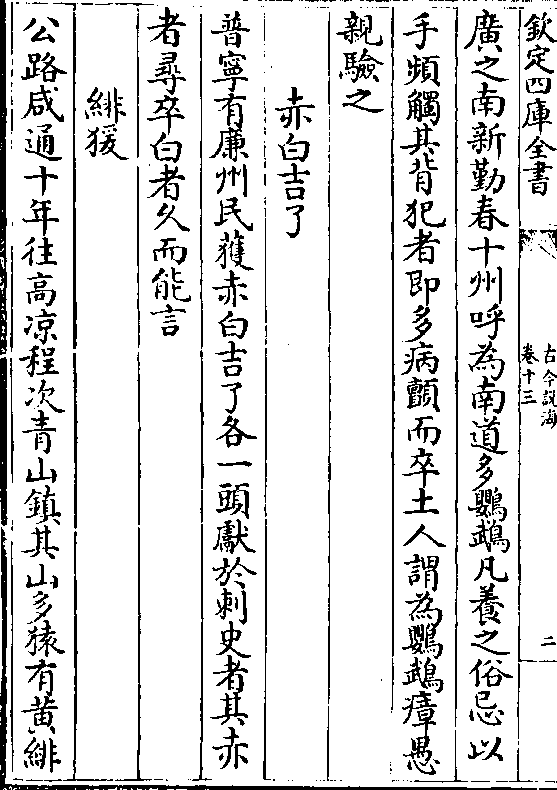 欽定四庫全書
古今說海
卷十三
二
廣之南新勤春十州呼為南道多鸚鵡凡養之俗忌以
手頻觸其背犯者即多病顫而卒土人謂為鸚鵡瘴愚
親驗之
赤白吉了
普寧有廉州民獲赤白吉了各一頭獻於刺史者其赤
者尋卒白者久而能言
緋猨
公路咸通十年往高凉程次青山鎮其山多猿有黄緋